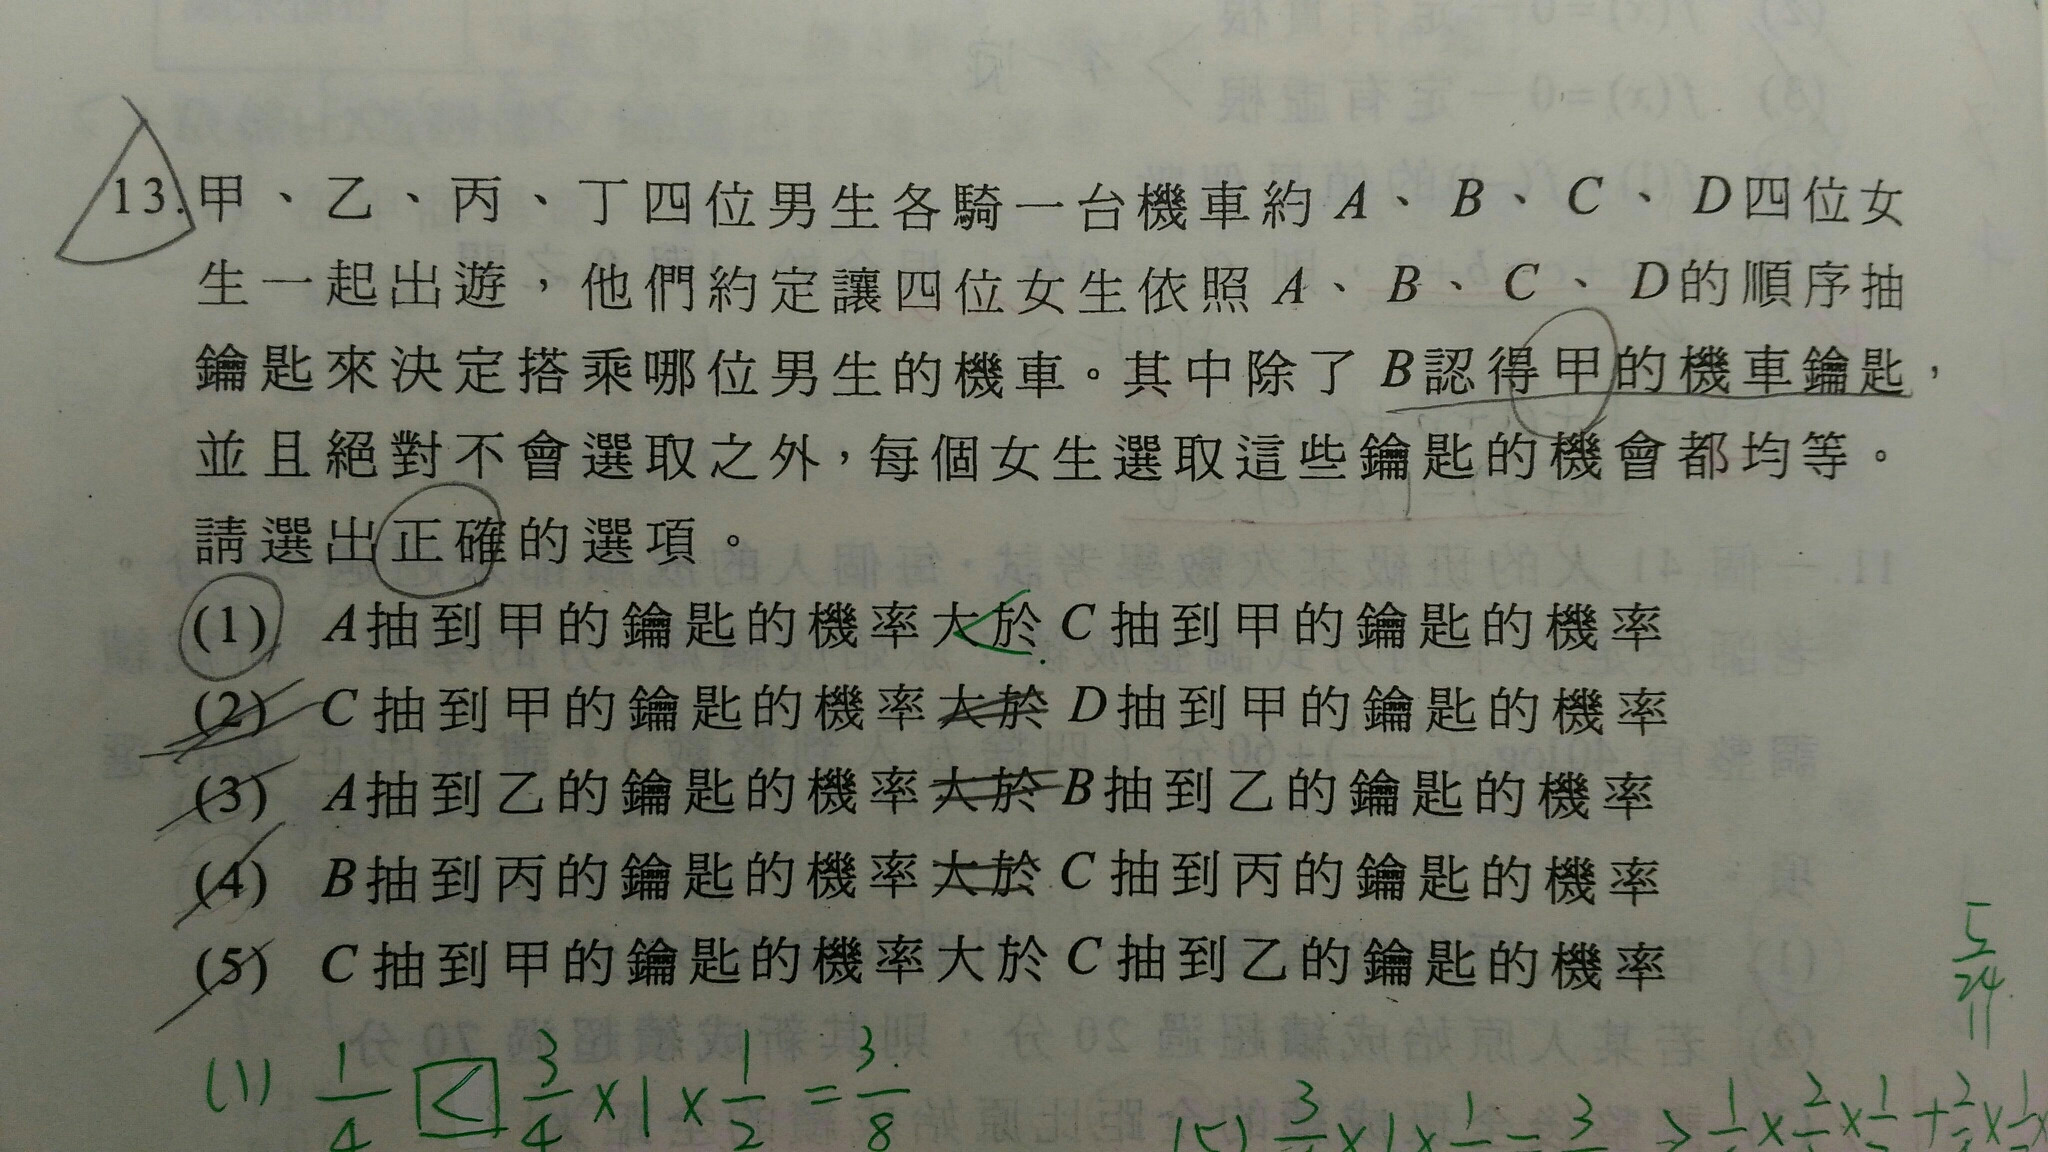 13.甲、乙、丙、丁四位男生各騎一台機車約A、B、C、D四位女
生一起出遊，他們約定讓四位女生依照A、B、C、D的順序抽
鑰匙來決定搭乘哪位男生的機車。其中除了B認得甲的機車鑰匙，
並且絕對不會選取之外，每個女生選取這些鑰匙的機會都均等。
請選出正確的選項。
(1) A抽到甲的鑰匙的機率大於C抽到甲的鑰匙的機率
(2) C抽到甲的鑰匙的機率大於D抽到甲的鑰匙的機率
(3) A抽到乙的鑰匙的機率大於B抽到乙的鑰匙的機率
(4) B抽到丙的鑰匙的機率大於C抽到丙的鑰匙的機率
(5) C抽到甲的鑰匙的機率大於C抽到乙的鑰匙的機率
5/24
(1) 1/4 < 3/4 × 1 × 1/2 = 3/8